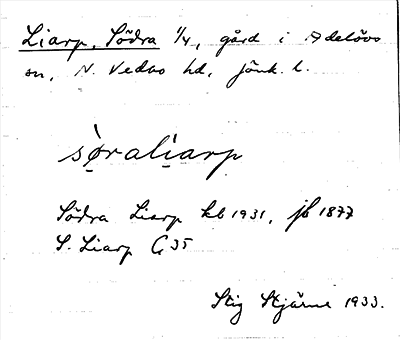 Liarp, Södra 1/4, gård i Adelövs
sn, N. Vedbo hd, Jönk. l.
sø̀ralìarp
Södra Liarp kb 1931, jb 1877
S. Liarp G 35
Stig Stjärne 1933.